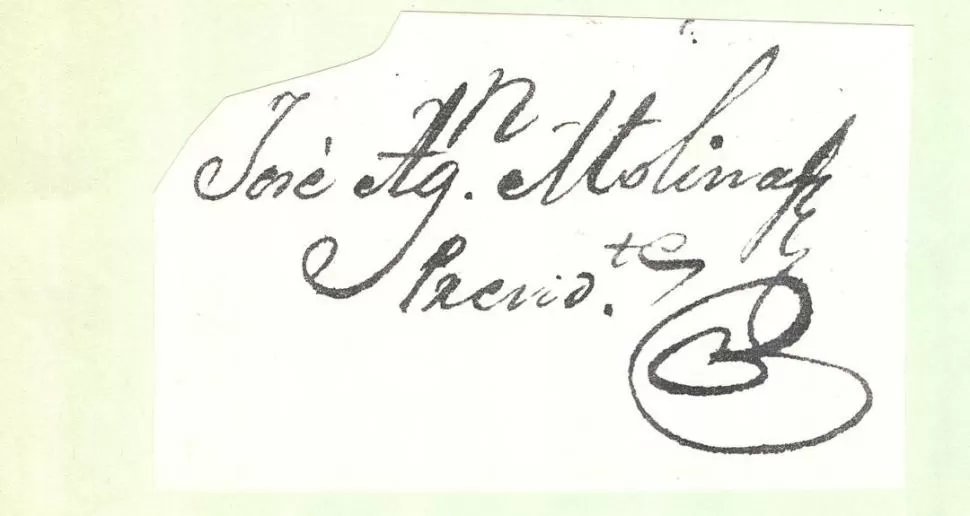 José Ag.n Molina
Presid.te